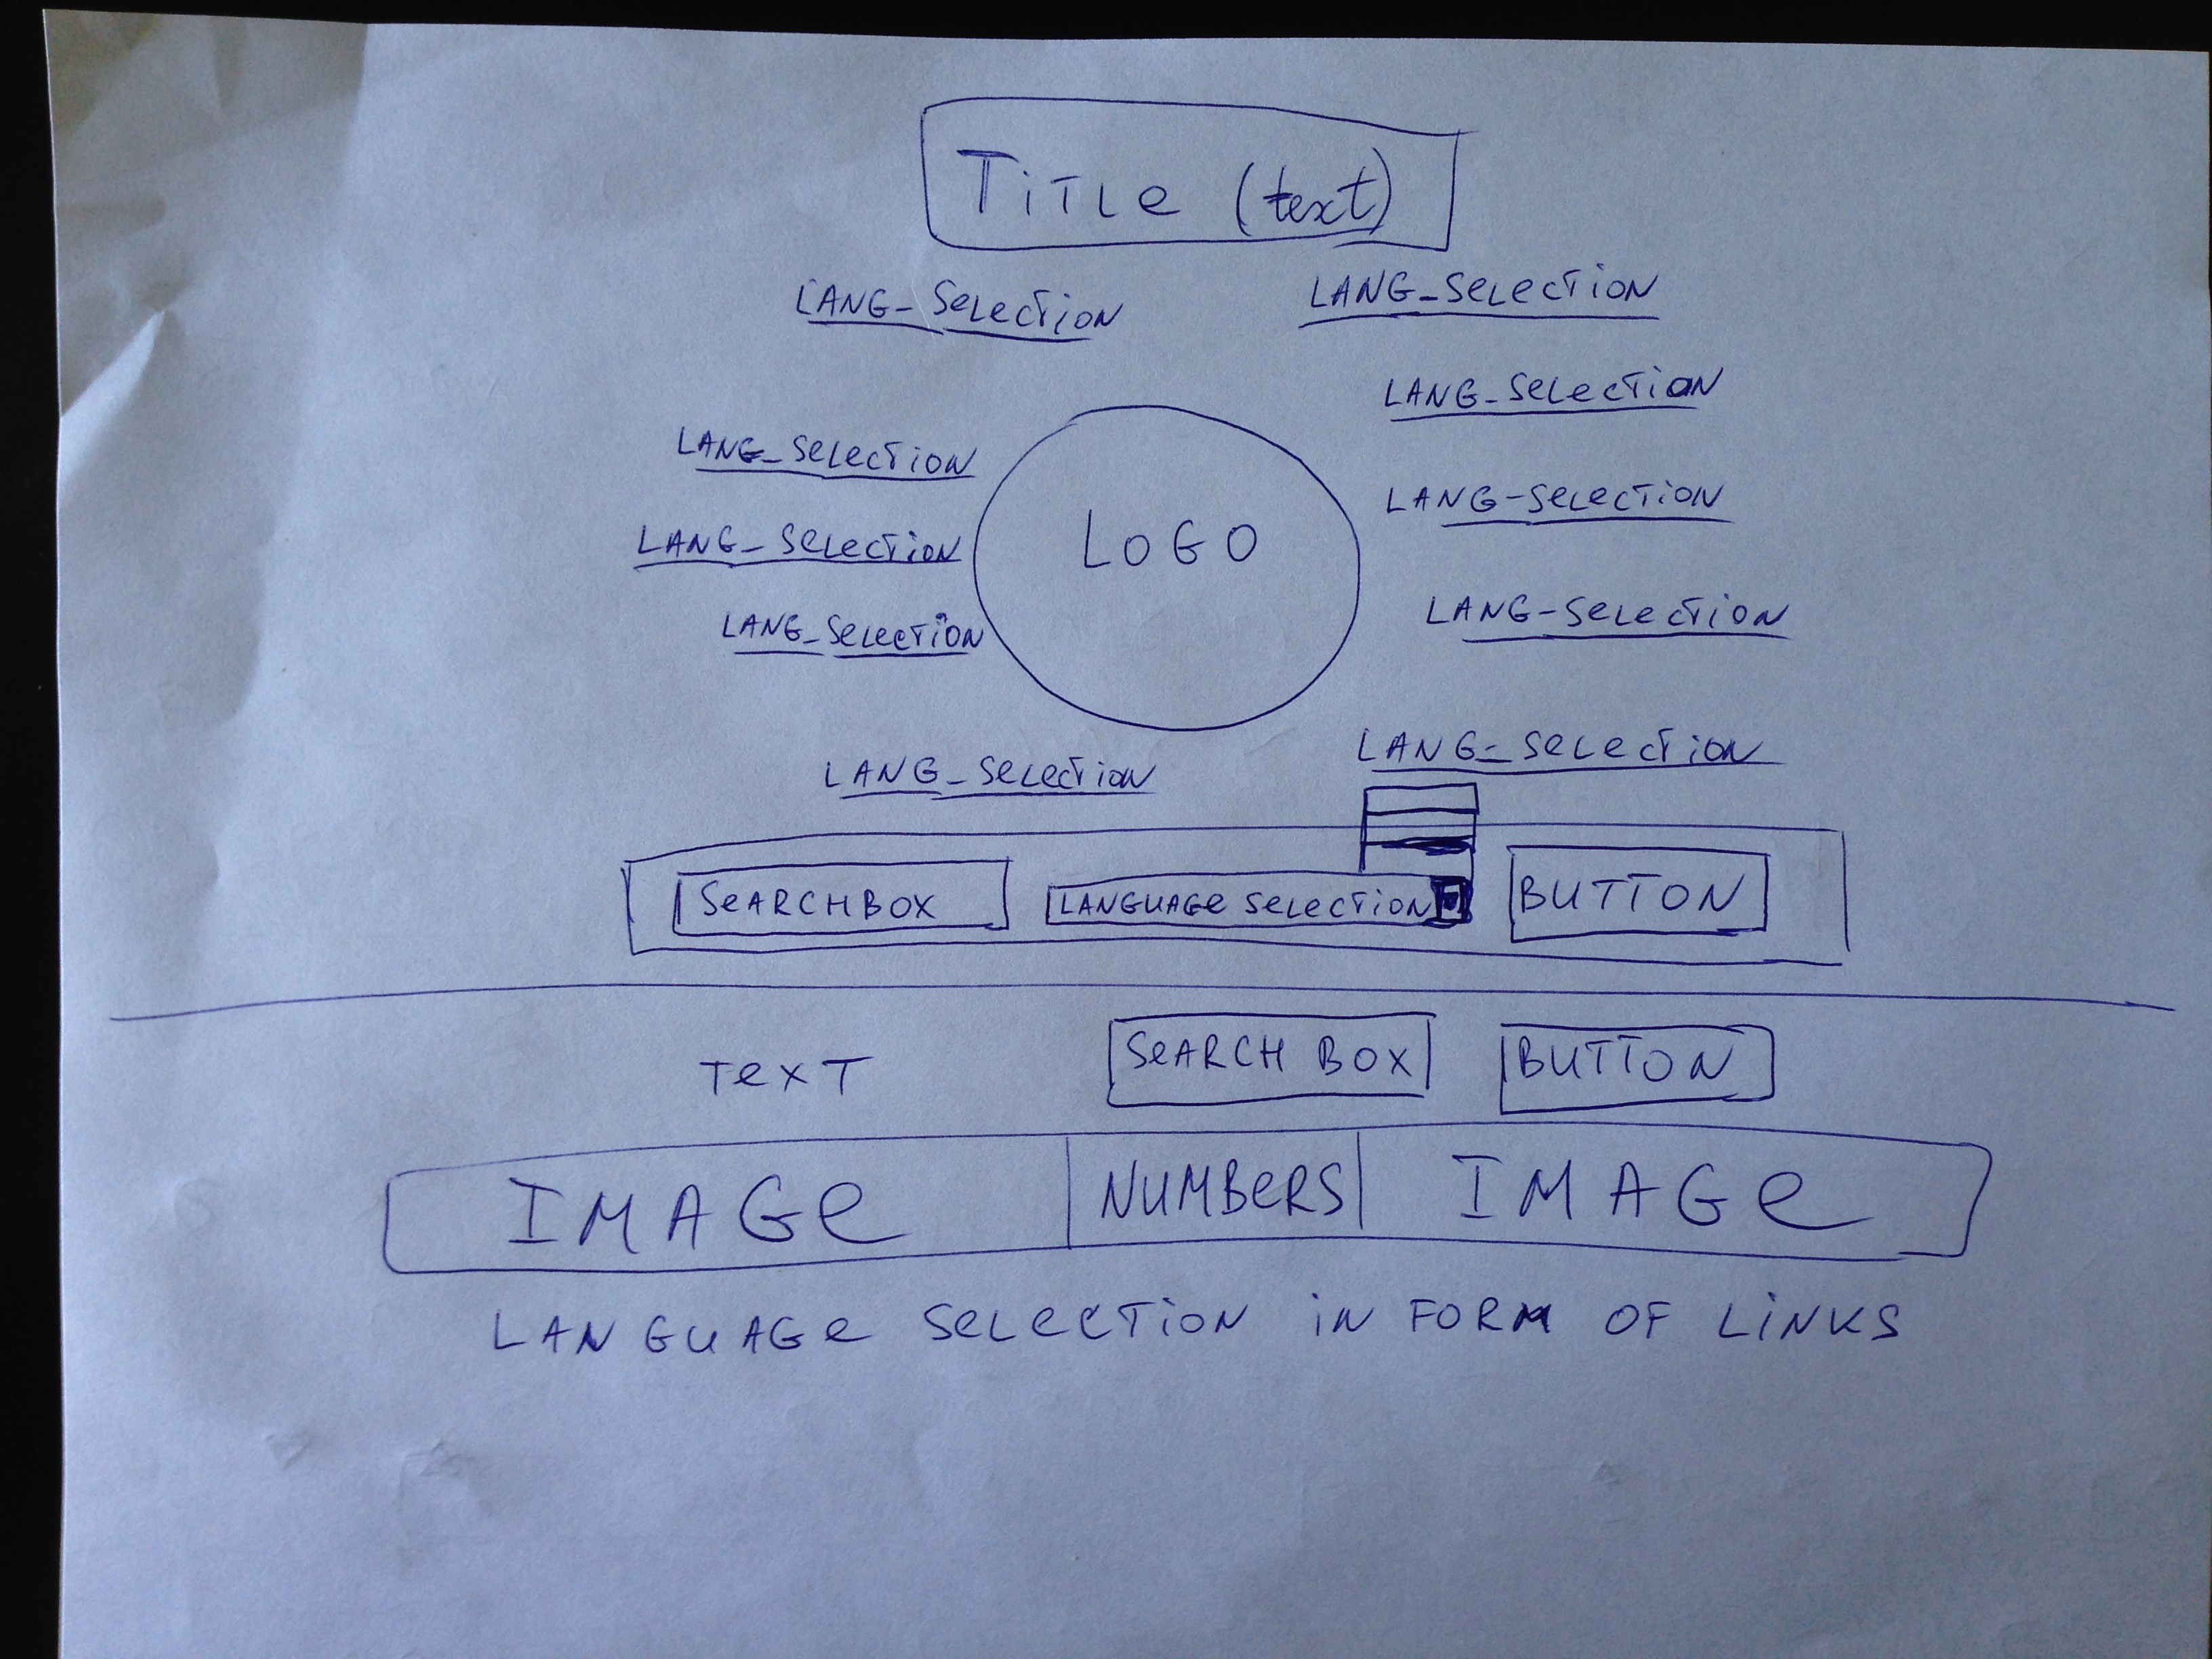 TiTLe (text)
LANG-SeLection
LANG-SeLection
LANG-SeLection
LANG-SeLection
LANG-SeLection
LOGO
LANG-SeLection
LANG-SeLection
LANG-SeLection
LANG-SeLection
LANG-SeLection
SeARCHBOX
LANGUAGe SeLection
BUTTON
TexT
SeARCH BOX
BUTTON
IMAGe
NUMBeRS
IMAGe
LANGUAGe SeLecTiON iN FORM OF LiNKS